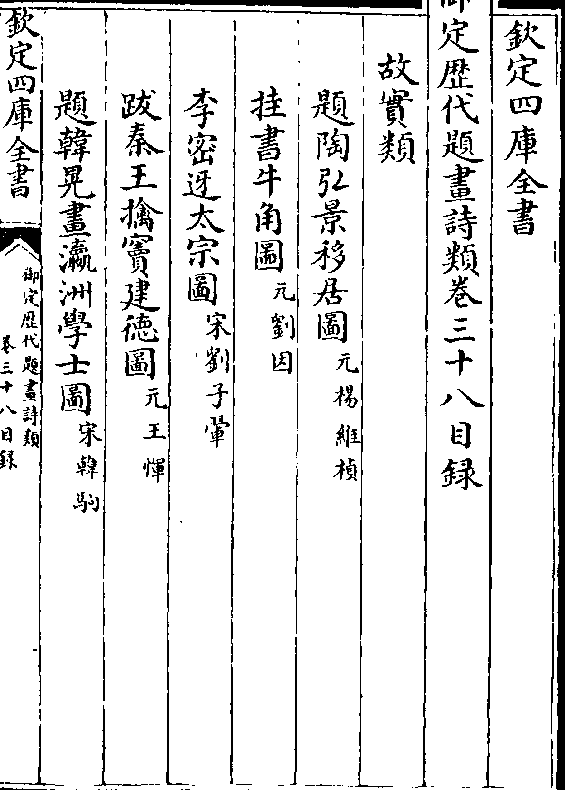 欽定四庫全書
御定歴代題畫詩類卷三十八目録
故實類
題陶弘景移居圖 元楊維楨
挂書牛角圖 元劉因
李密迓太宗圖 宋劉子翬
跋秦王擒竇建德圖 元王惲
題韓晃畫瀛洲學士圖 宋韓駒
欽定四庫全書
御定歴代題畫詩類
卷三十八目録